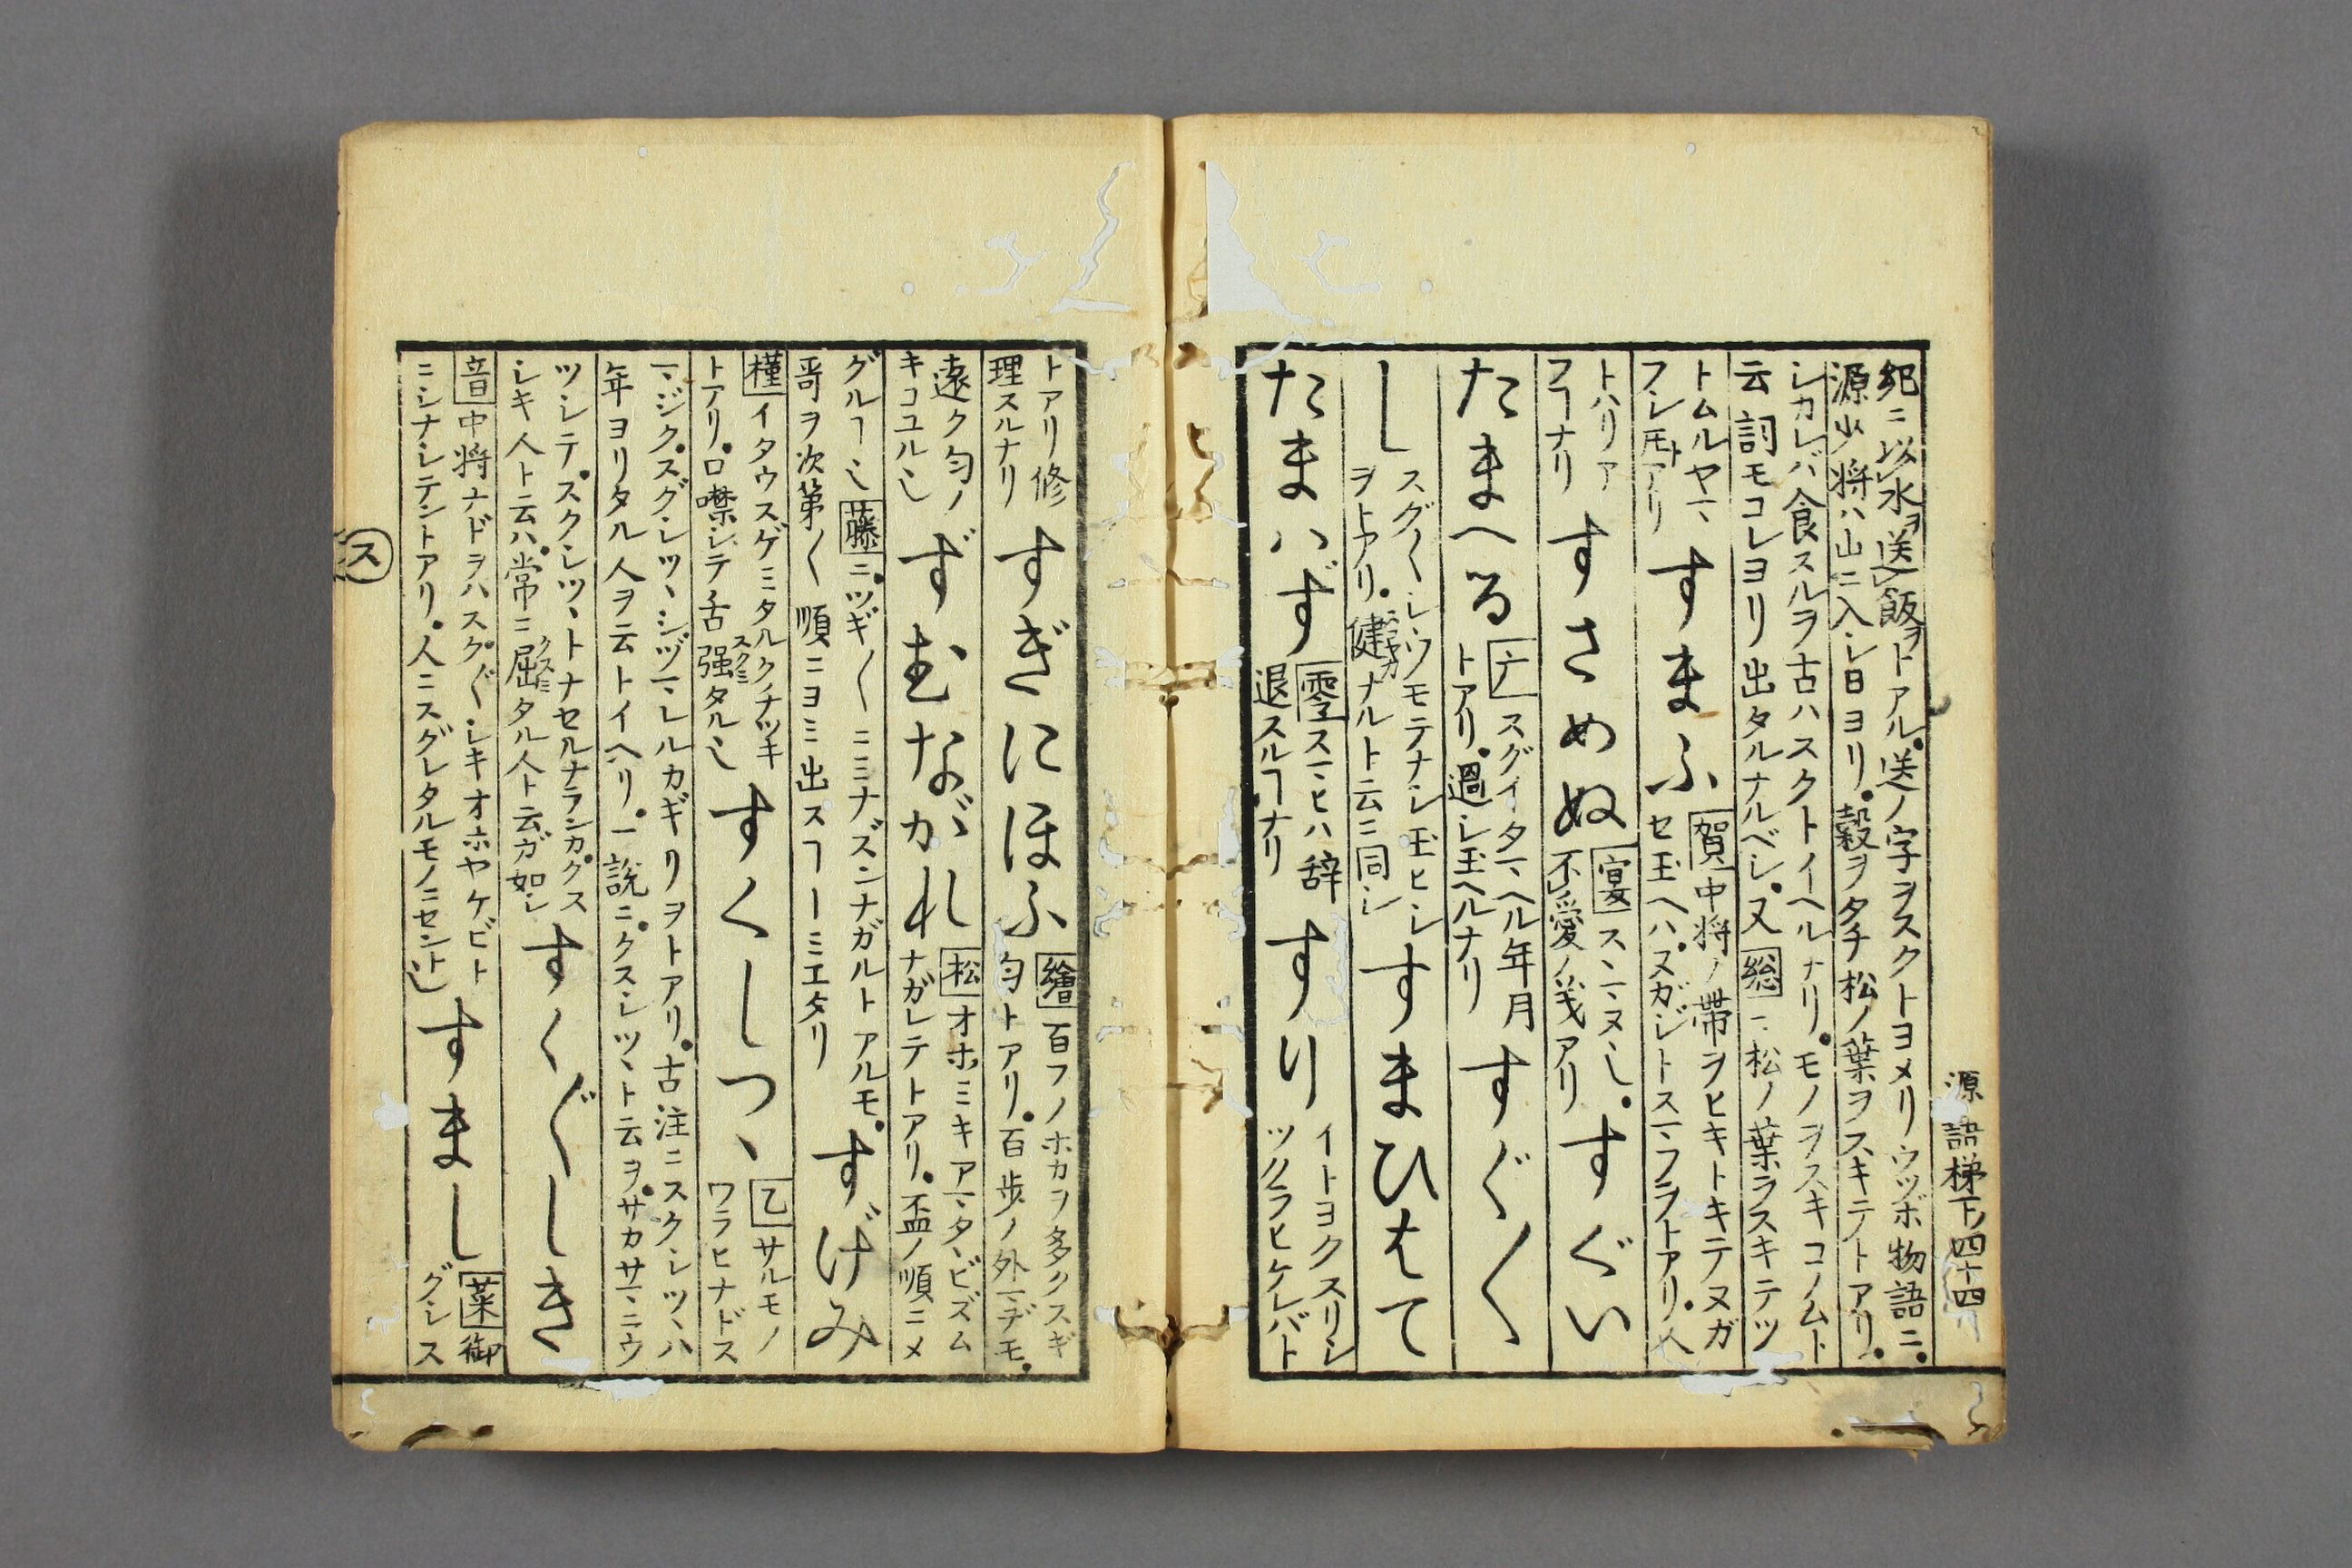 源語梯下ノ四十四
紀ニ以水ヲ送飯ヲトアル。送ノ字ヲスクトヨメリウツボ物語ニ。
源少将ハ山ニ入シ日ヨリ。穀ヲタチ松ノ葉ヲスキテトアリ。
シカレバ食スルヲ古ハスクトイヘルナリ。モノヲスキコノムト
云詞モコレヨリ出タルナルベシ。又総ニ松ノ葉ヲスキテツ
トムルヤマヽ
フシ𪜈アリ
すまふ
賀中将ノ帯ヲヒキトキテヌガ
セ玉ヘハ。ヌガジトスマフヲトアリ。人
トハリア
フヿナリ
すさめぬ
宴スサヌ
不愛ノ義アリ
すぐい
たまへる
亡スグイタマヘル年月
トアリ。過シ玉ヘルナリ
すぐ〱
し
スグ〱シウモテナシ玉ヒシ
ヲトアリ。健ナルト云ニ同シ
すまひはて
たまはず
零スマヒハ辞
退スルヿナリ
すり
イトヨクスリシ
ツクラヒケレバト
トアリ修
理スルナリ
すぎにほふ
繪百フノホカヲ多クスギ
匂トアリ。百歩ノ外マデモ。
遠ク匂ノ
キコユルシ
ずむながれ
松オホミキアマタヽビズム
ナガレテトアリ。盃ノ順ニメ
グルヿシ藤ニ。ツギ〱ニミナズンナガルトアルモ。
哥ヲ次第〱順ニヨミ出スヿトミエタリ
すげみ
槿イタウスゲミタルクチツキ
トアリ。口噤シテ舌强タルシ
すくしつヽ
乙サルモノ
ワラヒナドス
マジク。スグシツヽシヅマレルカギリヲトアリ。古注ニスクシツヽハ
年ヨリタル人ヲ云トイヘリ。一説ニ。クスシツヽト云ヲ。サカサマニウ
ツシテ。スクシツヽトナセルナランカ。クス
シキ人ト云ハ。常ニ屈タル人ト云ガ如シ
すくぐしき
音中将ナドヲハスクぐシキオホヤケビト
ニシナシテントアリ。人ニスグレタルモノニセントシ
すまし
菜御
グシス
ス